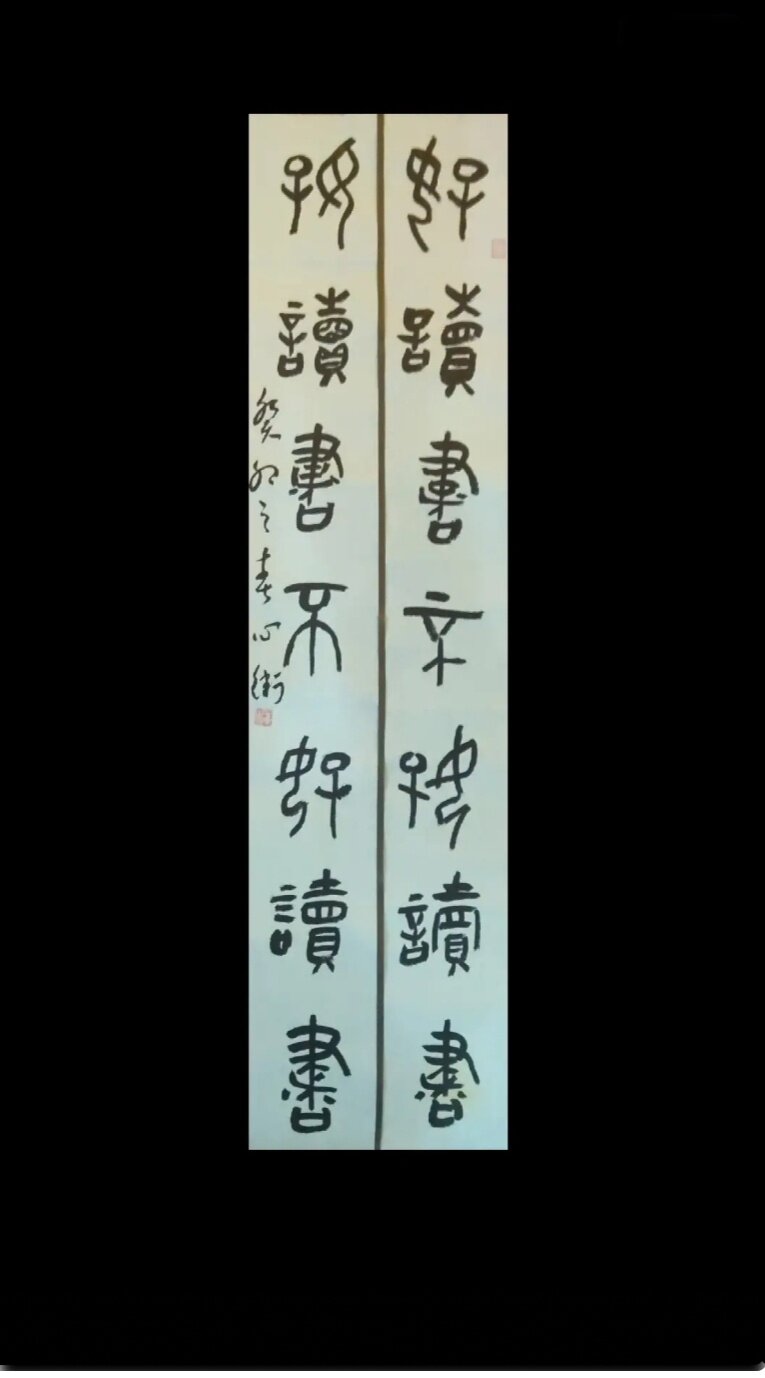 好讀書不好讀書
好讀書不好讀書
癸卯之春心